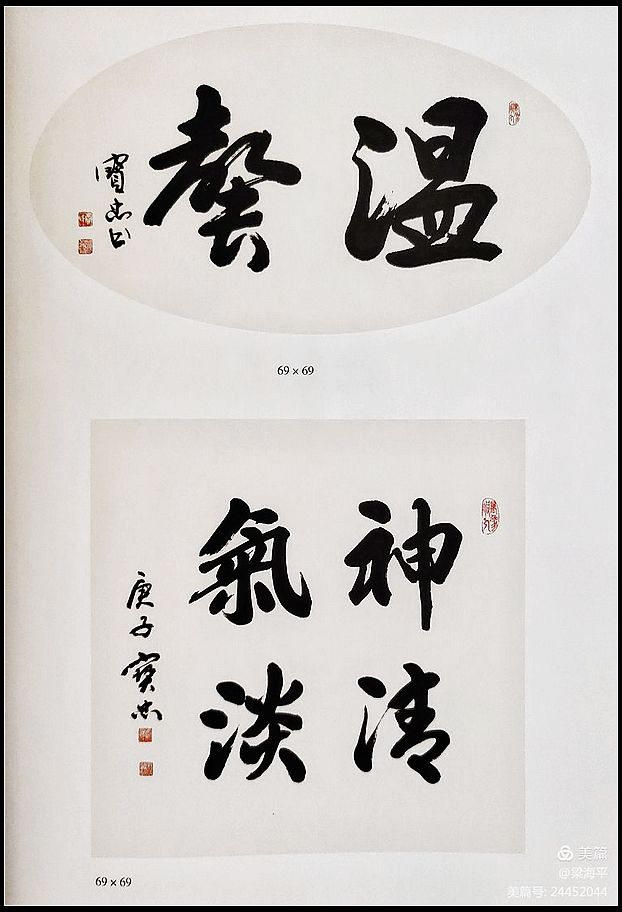 温馨
寶忠书
69 × 69
神清
氣淡
庚子寶忠
69 × 69
美篇
@梁海平
美篇号: 24452044